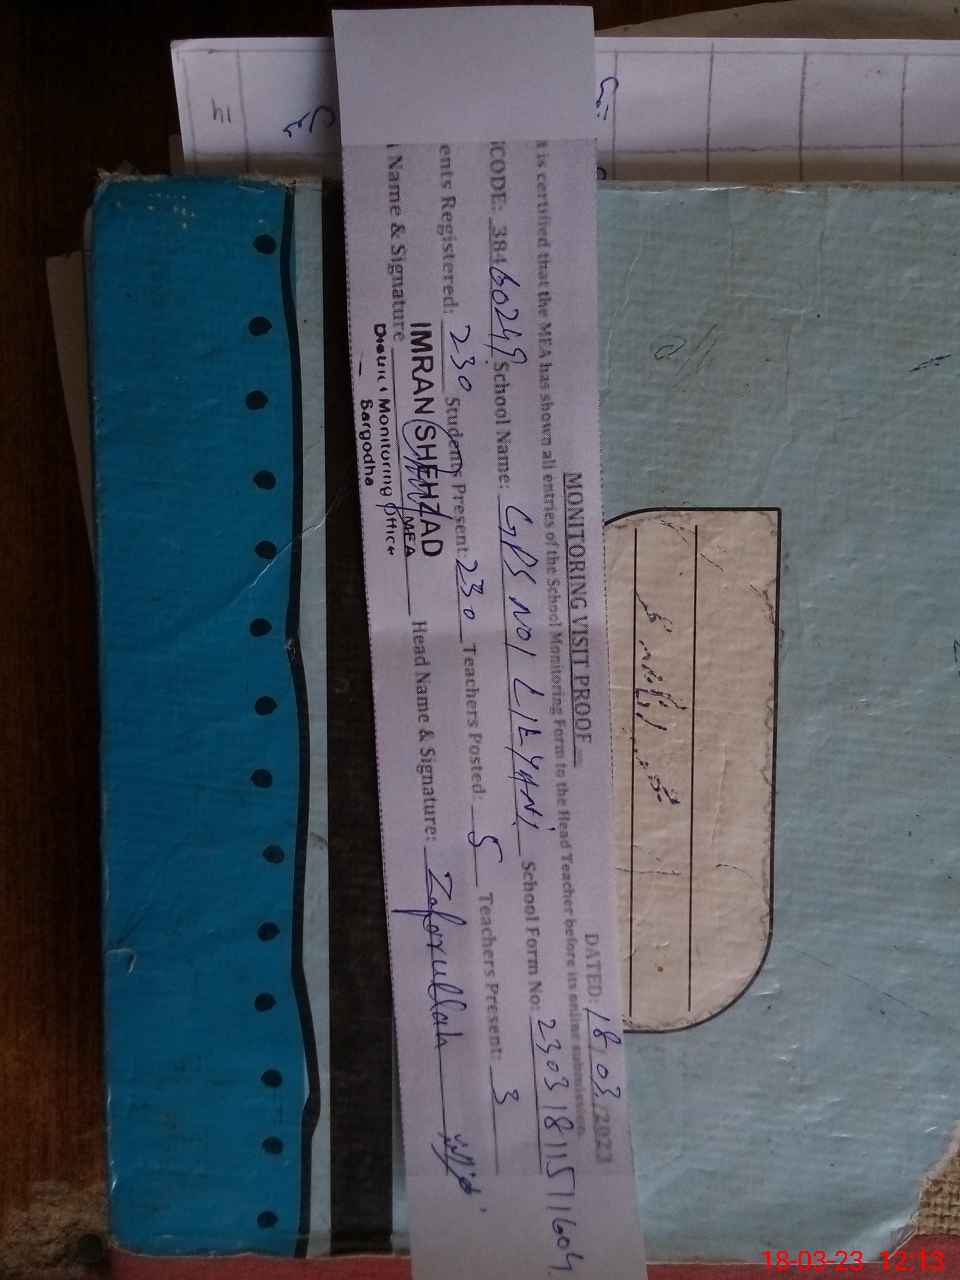 MONITORING VISIT PROOF
DATED: 18/03/2023
t is certified that the MEA has shown all entries of the School Monitoring Form to the Head Teacher before its online submission.
ICODE: 38460249 School Name: GPS NO1 LILYANI School Form No: 23031811511604
ents Registered: 230 Students Present: 230 Teachers Posted: 5 Teachers Present: 3
Name & Signature Head Name & Signature: Zafarullah
IMRAN SHEHZAD
MEA
District Monitoring Office
Sargodha
18-03-23 12:13